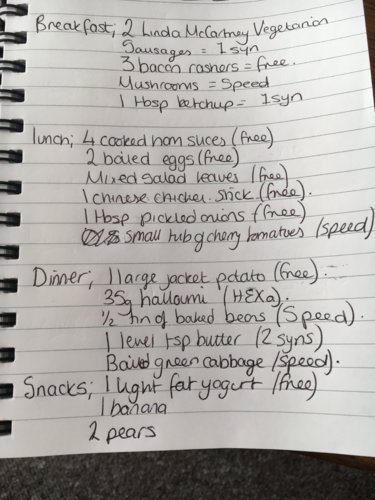 Breakfast; 2 Linda McCartney Vegetarian
Sausages = 1 syn
3 bacon rashers = free.
Mushrooms = Speed
1 tbsp ketchup = 1 syn
lunch; 4 cooked ham slices (free)
2 boiled eggs (free)
Mixed salad leaves (free)
1 chinese chicken stick (free).
1 tbsp pickled onions (free)
small tub of cherry tomatoes (speed)
Dinner; 1 large jacket potato (free).
35g halloumi (HEXa).
1/2 tin of baked beans (Speed).
1 level tsp butter (2 syns)
Boiled green cabbage (speed).
Snacks; 1 light fat yogurt (free)
1 banana
2 pears